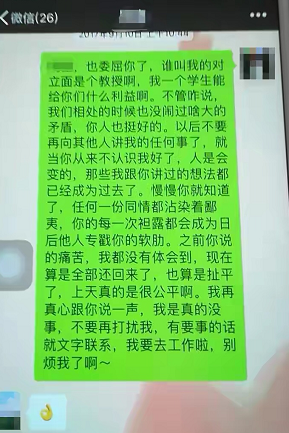 微信(26)
2017年9月10日 上午10:41
，也委屈你了，谁叫我的对
立面是个教授啊，我一个学生能
给你们什么利益啊。不管咋说，
我们相处的时候也没闹过啥大的
矛盾，你人也挺好的。以后不要
再向其他人讲我的任何事了，就
当你从来不认识我好了，人是会
变的，那些我跟你讲过的想法都
已经成为过去了。慢慢你就知道
了，任何一份同情都沾染着鄙
夷，你的每一次袒露都会成为日
后他人专戳你的软肋。之前你说
的痛苦，我都没有体会到，现在
算是全部还回来了，也算是扯平
了，上天真的是很公平啊。我再
真心跟你说一声，我是真的没
事，不要再打扰我，有要事的话
就文字联系，我要去工作啦，别
烦我了啊～